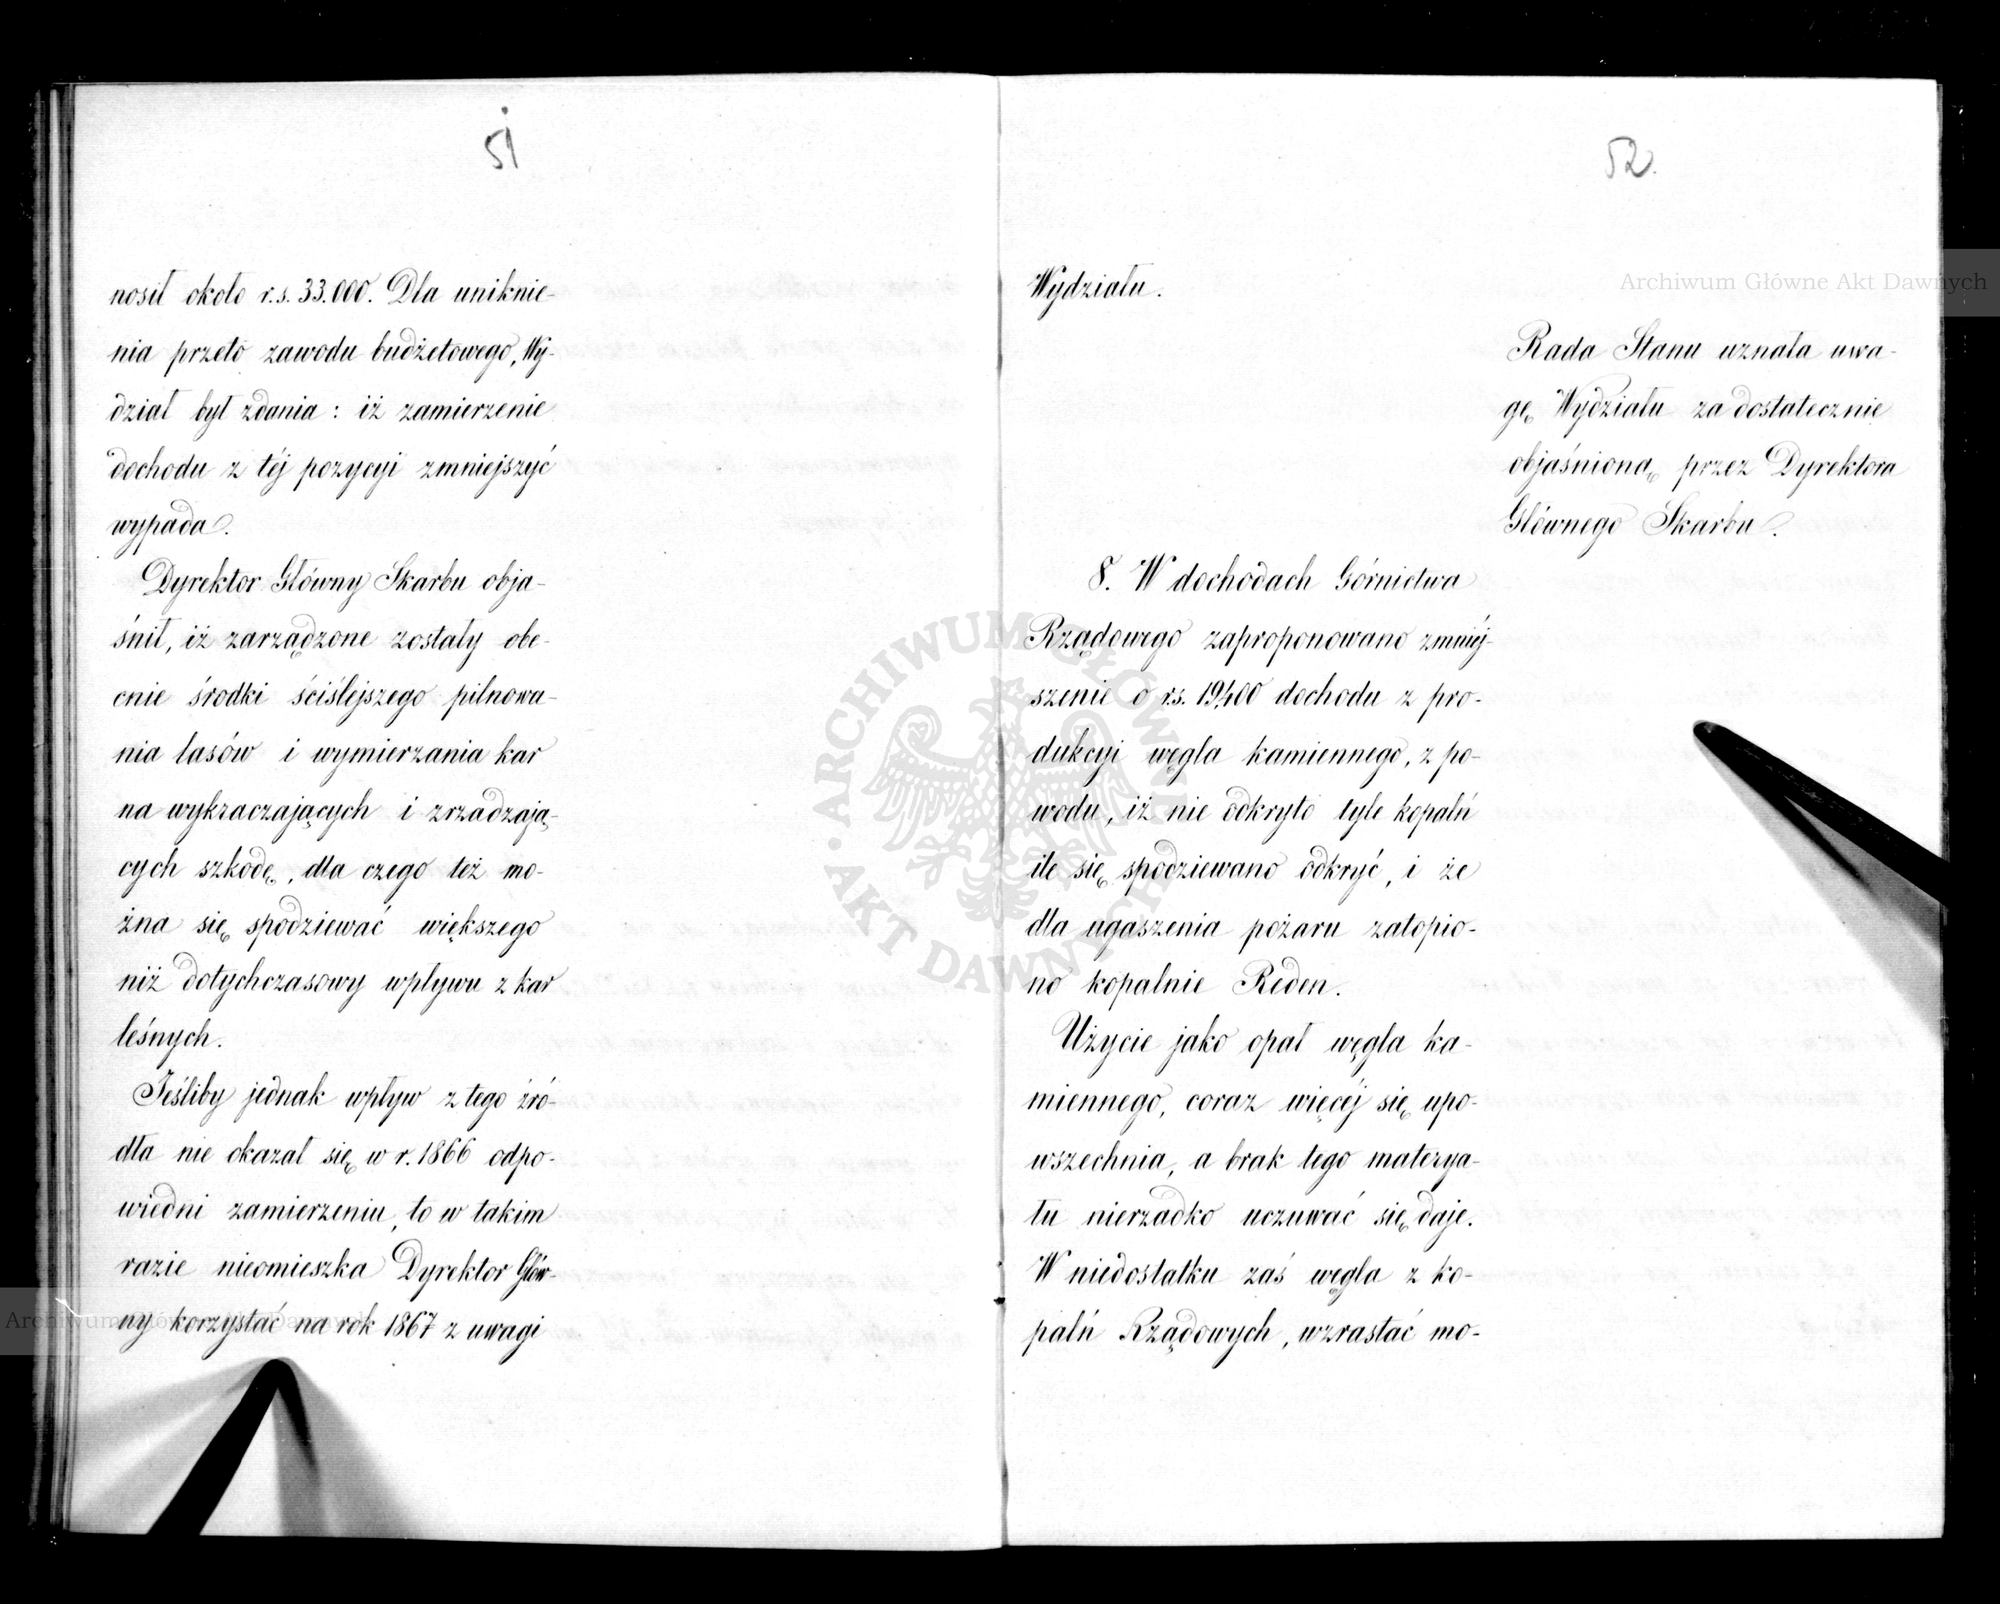 51
nosił około r.s. 33.000. Dla uniknie-
nia przeto zawodu budżetowego, Wy-
dział był zdania: iż zamierzenie
dochodu z téj pozycyi zmniejszyć
wypada.
Dyrektor Główny Skarbu obja-
śnił, iż zarządzone zostały obe-
cnie środki ściślejszego pilnowa-
nia lasów i wymierzania kar
na wykraczających i zrzadzają-
cych szkodę, dla czego też mo-
żna się spodziewać większego
niż dotychczasowy wpływu z kar
leśnych.
Jeśliby jednak wpływ z tego źró-
dła nie okazał się w r. 1866 odpo-
wiedni zamierzeniu, to w takim
razie nieomieszka Dyrektor Głów-
ny korzystać na rok 1867 z uwagi
52.
Wydziału.
Rada Stanu uznała uwa-
gę Wydziału za dostatecznie
objaśnioną przez Dyrektora
Głównego Skarbu.
8. W dochodach Górnictwa
Rządowego zaproponowano zmniéj-
szenie o r.s. 19,400 dochodu z pro-
dukcyi węgla kamiennego, z po-
wodu, iż nie odkryto tyle kopalń
ile się spodziewano odkryć, i że
dla ugaszenia pożaru zatopio-
no kopalnie Reden.
Użycie jako opał węgla ka-
miennego, coraz więcéj się upo-
wszechnia, a brak tego materya-
łu nierzadko uczuwać się daje.
W niedostatku zaś węgla z ko-
palń Rządowych, wzrastać mo-
Archiwum Główne Akt Dawnych
Archiwum Główne Akt Dawnych
ARCHIWUM GŁÓWNE AKT DAWNYCH